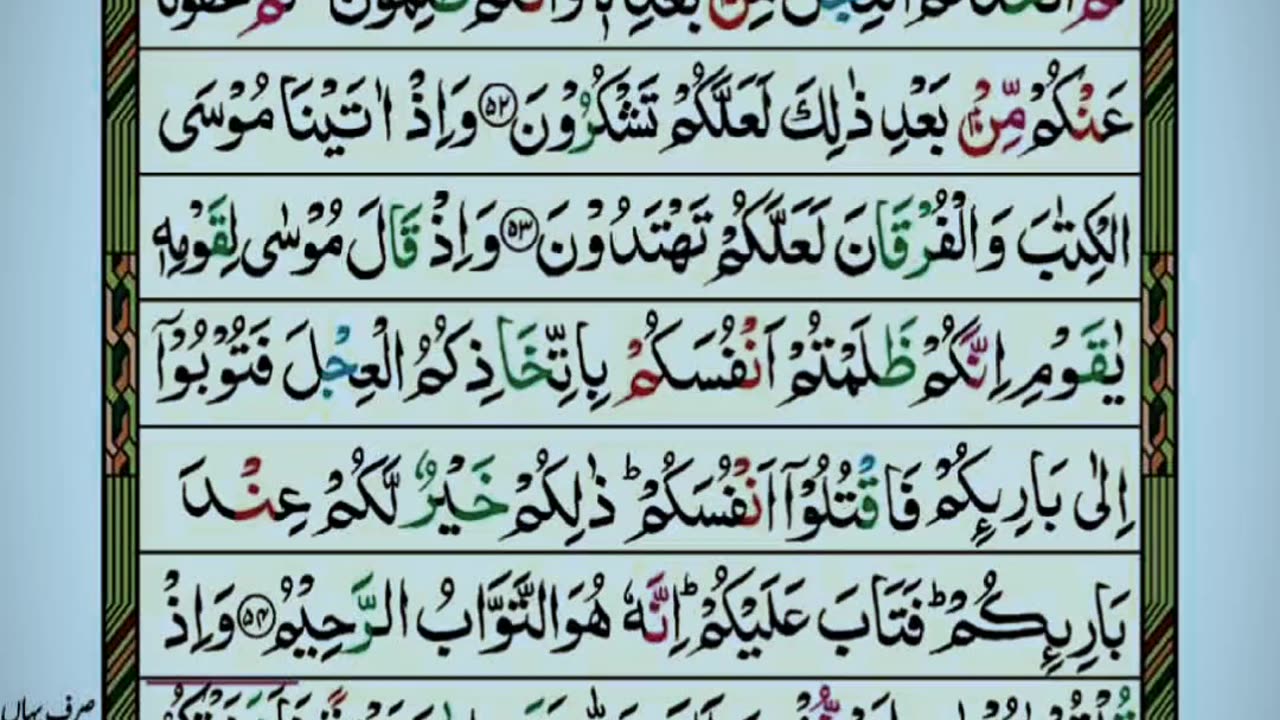 ثُمَّ اتَّخَذْتُمُ الْعِجْلَ مِنْۢ بَعْدِهٖ وَاَنْتُمْ ظٰلِمُوْنَ ثُمَّ عَفَوْنَا
عَنْكُمْ مِّنْۢ بَعْدِ ذٰلِكَ لَعَلَّكُمْ تَشْكُرُوْنَ ۵۲ وَاِذْ اٰتَيْنَا مُوْسَى
الْكِتٰبَ وَالْفُرْقَانَ لَعَلَّكُمْ تَهْتَدُوْنَ ۵۳ وَاِذْ قَالَ مُوْسٰى لِقَوْمِهٖ
يٰقَوْمِ اِنَّكُمْ ظَلَمْتُمْ اَنْفُسَكُمْ بِاتِّخَاذِكُمُ الْعِجْلَ فَتُوْبُوْٓا
اِلٰى بَارِىِٕكُمْ فَاقْتُلُوْٓا اَنْفُسَكُمْ ؕ ذٰلِكُمْ خَيْرٌ لَّكُمْ عِنْدَ
بَارِىِٕكُمْ ؕ فَتَابَ عَلَيْكُمْ ؕ اِنَّهٗ هُوَ التَّوَّابُ الرَّحِيْمُ ۵۴ وَاِذْ
صرف یہاں